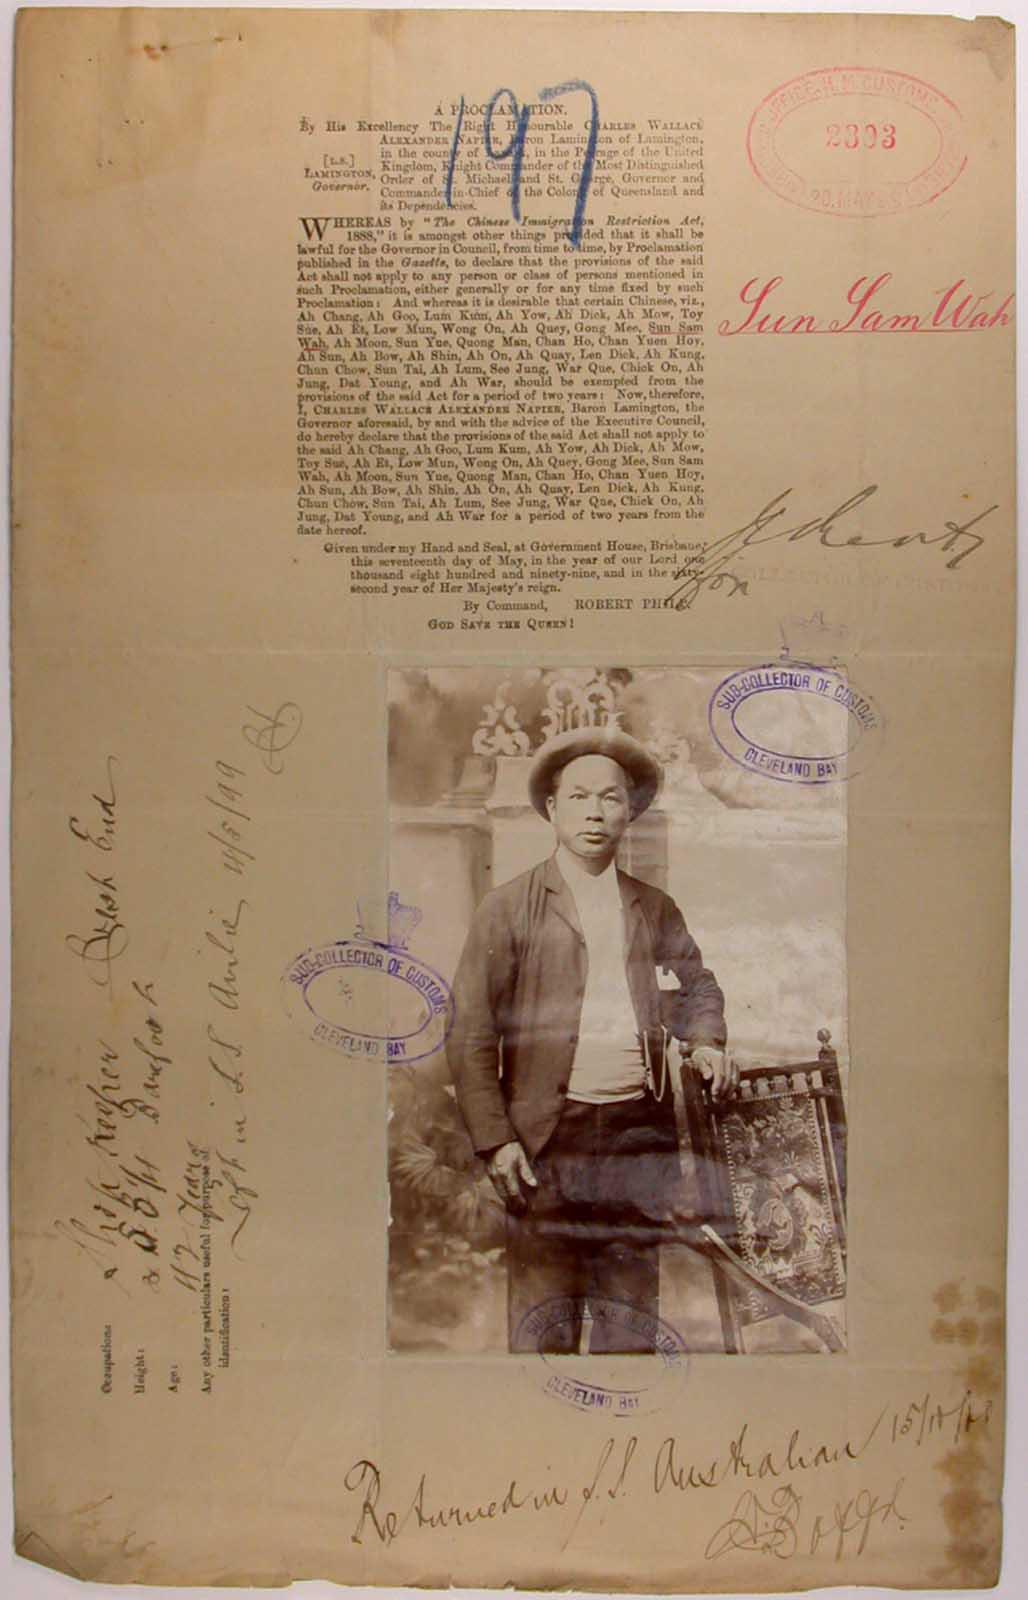 197
A PROCLAMATION.
By His Excellency The Right Honourable CHARLES WALLACE
ALEXANDER NAPIER, Baron Lamington of Lamington,
in the county of Lanark, in the Peerage of the United
[L.S.] Kingdom, Knight Commander of the Most Distinguished
LAMINGTON, Order of St. Michael and St. George, Governor and
Governor. Commander-in-Chief of the Colony of Queensland and
its Dependencies.
WHEREAS by "The Chinese Immigration Restriction Act,
1888," it is amongst other things provided that it shall be
lawful for the Governor in Council, from time to time, by Proclamation
published in the Gazette, to declare that the provisions of the said
Act shall not apply to any person or class of persons mentioned in
such Proclamation, either generally or for any time fixed by such
Proclamation: And whereas it is desirable that certain Chinese, viz.,
Ah Chang, Ah Goo, Lum Kum, Ah Yow, Ah Dick, Ah Mow, Toy
Sue, Ah Et, Low Mun, Wong On, Ah Quey, Gong Mee, Sun Sam
Wah, Ah Moon, Sun Yue, Quong Man, Chan Ho, Chan Yuen Hoy,
Ah Sun, Ah Bow, Ah Shin, Ah On, Ah Quay, Len Dick, Ah Kung,
Chun Chow, Sun Tai, Ah Lum, See Jung, War Que, Chick On, Ah
Jung, Dat Young, and Ah War, should be exempted from the
provisions of the said Act for a period of two years: Now, therefore,
I, CHARLES WALLACE ALEXANDER NAPIER, Baron Lamington, the
Governor aforesaid, by and with the advice of the Executive Council,
do hereby declare that the provisions of the said Act shall not apply to
the said Ah Chang, Ah Goo, Lum Kum, Ah Yow, Ah Dick, Ah Mow,
Toy Sue, Ah Et, Low Mun, Wong On, Ah Quey, Gong Mee, Sun Sam
Wah, Ah Moon, Sun Yue, Quong Man, Chan Ho, Chan Yuen Hoy,
Ah Sun, Ah Bow, Ah Shin, Ah On, Ah Quay, Len Dick, Ah Kung,
Chun Chow, Sun Tai, Ah Lum, See Jung, War Que, Chick On, Ah
Jung, Dat Young, and Ah War for a period of two years from the
date hereof.
Given under my Hand and Seal, at Government House, Brisbane,
this seventeenth day of May, in the year of our Lord one
thousand eight hundred and ninety-nine, and in the sixty-
second year of Her Majesty's reign.
By Command, ROBERT PHILP.
GOD SAVE THE QUEEN!
OFFICE H.M. CUSTOMS
2303
20. MAY
Sun Sam Wah
SUB-COLLECTOR OF CUSTOMS
CLEVELAND BAY
SUB-COLLECTOR OF CUSTOMS
CLEVELAND BAY
SUB-COLLECTOR OF CUSTOMS
CLEVELAND BAY
Occupation: Shop Keeper
Height: Barefoot
Age: 42 Years
Any other particulars useful for purpose of
identification:
Left in S.S. Airlie
Returned in S.S. Australian